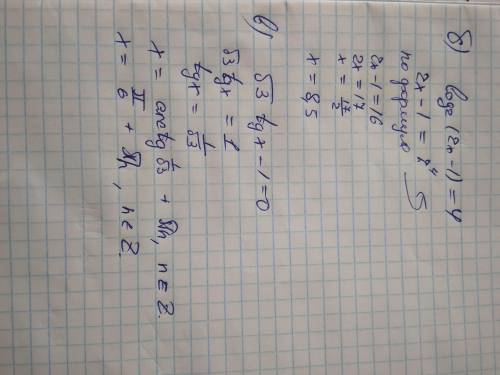 б) log₂(2x-1)=4
2x-1=2⁴
по формуле
2x-1=16
2x=17
x=17/2
x=8,5
в) √3 tgx-1=0
√3 tgx=1
tgx=1/√3
x=arctg 1/√3 + πn, n∈Z.
x=π/6 + πn, n∈Z.